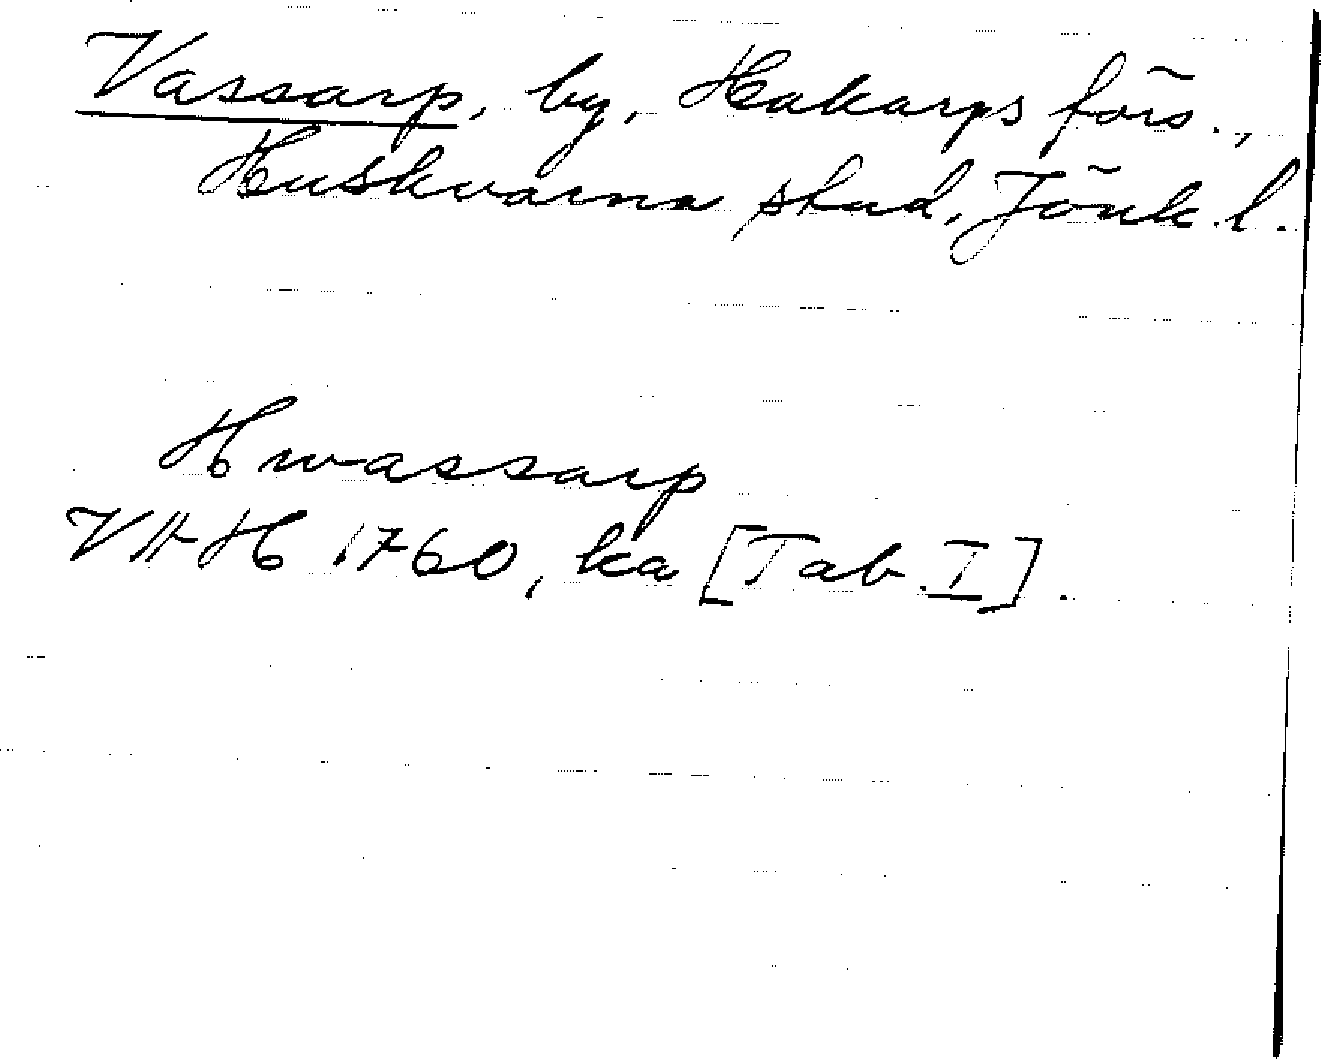 Vassarp, by, Hakarps förs.,
Huskvarna stad, Jönk. l.
Hwassarp
VHH 1760, ka [Tab. I].